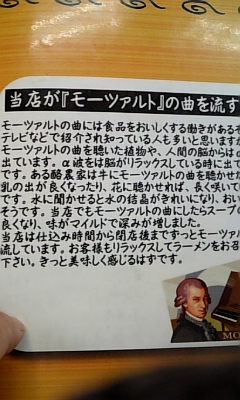 当店が『モーツァルト』の曲を流す
モーツァルトの曲には食品をおいしくする働きがあるそ
テレビなどで紹介され知っている人も多いと思いますが
モーツァルトの曲を聴いた植物や、人間の脳からはα
出ています。α波をは脳がリラックスしている時に出て
です。ある酪農家は牛にモーツァルトの曲を聴かせた
乳の出が良くなったり、花に聴かせれば、長く咲いて
です。水に聞かせると水の結晶がきれいになり、おい
そうです。当店でもモーツァルトの曲にしたらスープの
良くなり、味がマイルドで深みが増しました。
当店は仕込み時間から閉店後まですっとモーツァ
流しています。お客様もリラックスしてラーメンをお召
下さい。きっと美味しく感じるはずです。
MO